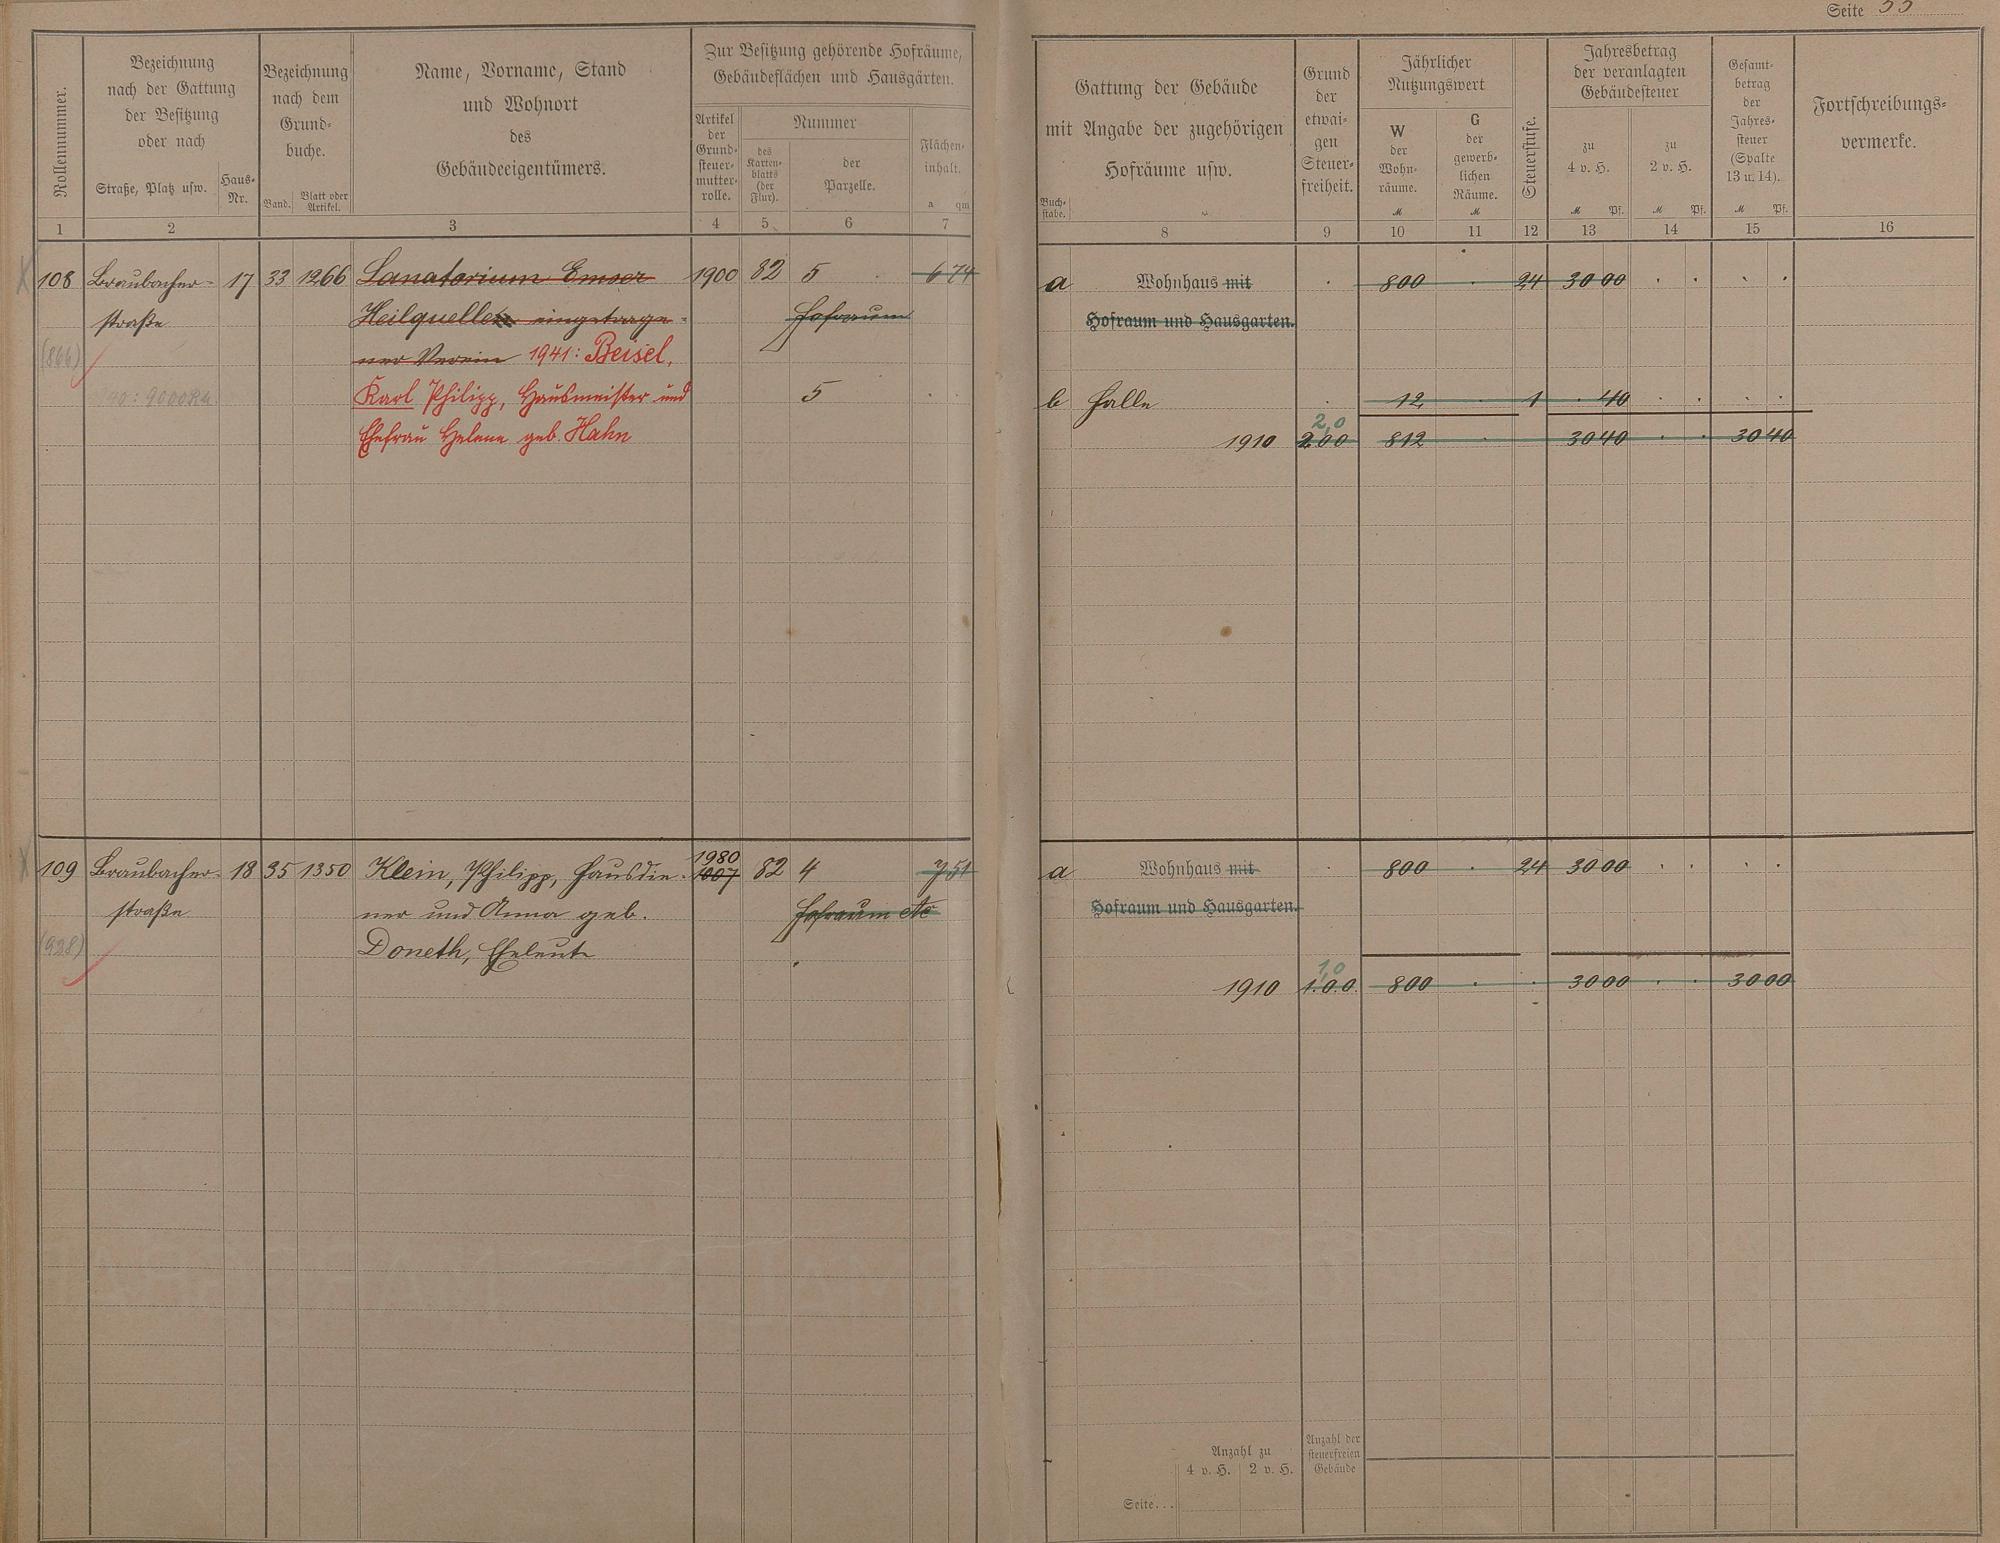 Seite 55
Rollennummer.
Bezeichnung
nach der Gattung
der Besitzung
oder nach
Straße, Platz usw.
Haus-
Nr.
Bezeichnung
nach dem
Grund-
buche.
Band.
Blatt oder
Artikel.
Name, Vorname, Stand
und Wohnort
des
Gebäudeeigentümers.
Zur Besitzung gehörende Hofräume,
Gebäudeflächen und Hausgärten.
Artikel
der
Grund-
steuer-
mutter-
rolle.
Nummer
des
Karten-
blatts
(der
Flur).
der
Parzelle.
Flächen-
inhalt.
a qm
1 2 3 4 5 6 7
Buch-
stabe.
Gattung der Gebäude
mit Angabe der zugehörigen
Hofräume usw.
Grund
der
etwai-
gen
Steuer-
freiheit.
Jährlicher
Nutzungswert
W
der
Wohn-
räume.
M
G
der
gewerb-
lichen
Räume.
M
Steuerstufe.
Jahresbetrag
der veranlagten
Gebäudesteuer
zu
4 v. H.
M Pf.
zu
2 v. H.
M Pf.
Gesamt-
betrag
der
Jahres-
steuer
(Spalte
13 u. 14).
M Pf.
Fortschreibungs-
vermerke.
8 9 10 11 12 13 14 15 16
108 Braubacher- 17 33 1266 Sanatorium Emser 1900 82 5 6 74
straße Heilquelle eingetrage- Hofraum
(866) ner Verein 1941: Beisel,
40: 9000RM Karl Philipp, Hausmeister und 5
Ehefrau Helene geb. Hahn
a Wohnhaus mit 800 24 30 00
Hofraum und Hausgarten.
b Halle 12 1 40
2,0
1910 200 812 30 40 30 40
1980
109 Braubacher- 18 35 1350 Klein, Philipp, Hausdie- 1007 82 4 7 51
straße ner und Anna geb. Hofraum etc
(938) Doneth, Eheleute
a Wohnhaus mit 800 24 30 00
Hofraum und Hausgarten.
1,0
1910 1.0.0. 800 30 00 30 00
Anzahl zu
4 v. H. 2 v. H.
Anzahl der
steuerfreien
Gebäude
Seite...